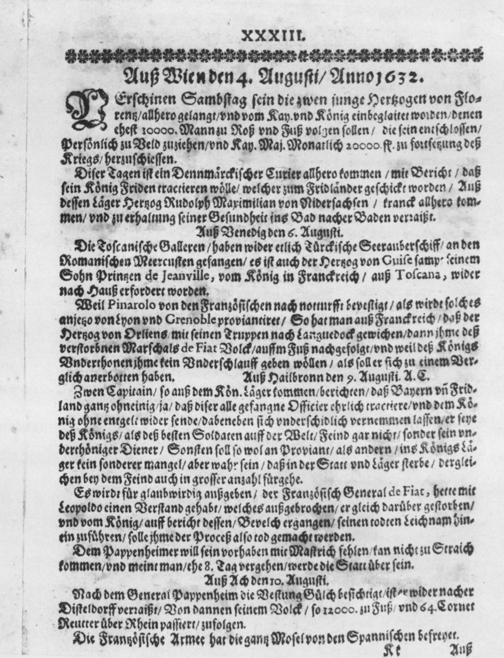 XXXIII.
Auß Wien den 4. Augusti/ Anno 1632.
VErschinen Sambstag sein die zwen junge Hertzogen von Flo-
rentz/allhero gelangt/vnd vom Kay. vnd König einbegleitet worden/denen
ehest 10000. Mann zu Roß vnd Fuß volgen sollen / die sein entschlossen/
Persönlich zu Veld zuziehen/vnd Kay. Maj. Monatlich 20000. ff. zu fortsetzung deß
Kriegs/herzuschiessen.
Diser Tagen ist ein Dennmärckischer Curier allhero kommen / mit Bericht / daß
sein König Friden tractieren wölle/ welcher zum Fridländer geschickt worden / Auß
dessen Läger Hertzog Rudolph Maximilian von Nidersachsen / kranck allhero kom-
men/ vnd zu erhaltung seiner Gesundheit ins Bad nacher Baden verraißt.
Auß Venedig den 6. Augusti.
Die Toscanische Galleren/ haben wider etlich Türckische Seerauberschiff/ an den
Romanischen Meercusten gefangen/ es ist auch der Hertzog von Guise sampt seinem
Sohn Printzen de Jeanville, vom König in Franckreich / auß Toscana, wider
nach Hauß erfordert worden.
Weil Pinarolo von den Französischen nach notturfft bevestigt / als wirdt solches
anjetzo von Lyon vnd Grenoble proviantiret / So hat man auß Franckreich / daß der
Hertzog von Orliens mit seinen Truppen nach Languedock gewichen/dann jhme deß
verstorbnen Marschals de Fiat Volck/auffm Fuß nachgefolgt/vnd weil deß Königs
Vnderthonen jhme kein Vnderschlauff geben wöllen / als soller sich zu einem Ver-
glich anerbotten haben. Auß Hailbronn den 9. Augusti. A. C.
Zwen Capitain/ so auß dem Kön. Läger kommen/berichten/daß Bayern vñ Frid-
land gantz ohneinig/ja/ daß diser alle gefangne Officier ehrlich tractiere/vnd dem Kö-
nig ohne entgelt wider sende/dabeneben sich vnderschidlich vernemmen lassen/er seye
deß Königs/ als deß besten Soldaten auff der Welt/ Feind gar nicht/ sonder sein vn-
derthöniger Diener / Sonsten soll so wol an Proviant/ als andern / ins Königs Lä-
ger kein sonderer mangel/ aber wahr sein/ daß in der Statt vnd Läger sterbe / derglei-
chen bey dem Feind auch in grosser anzahl fürgehe.
Es wird für glaubwirdig außgeben / der Französisch General de Fiat, hette mit
Leopoldo einen Verstand gehabt/ welches außgebrochen/ er gleich darüber gestorben/
vnd vom König/auff bericht dessen/ Bevelch ergangen/ seinen todten Leichnam hin-
ein zuführen/ solle jhme der Proceß also tod gemacht werden.
Dem Pappenheimer will sein vorhaben mit Mastrich fehlen/kan nicht zu Straich
kommen/vnd meint man/ehe 8. Tag vergehen/ werde die Statt über sein.
Auß Ach den 10. Augusti.
Nach dem General Pappenheim die Vestung Gülch besichtiget/ist er wider nacher
Disteldorff verraißt/ Von dannen seinem Volck/ so 12000. zu Fuß/ vnd 64. Cornet
Reutter über Rhein passiert/zufolgen.
Die Französische Armee hat die gantz Mosel von den Spannischen befreyet.
Kk Auß